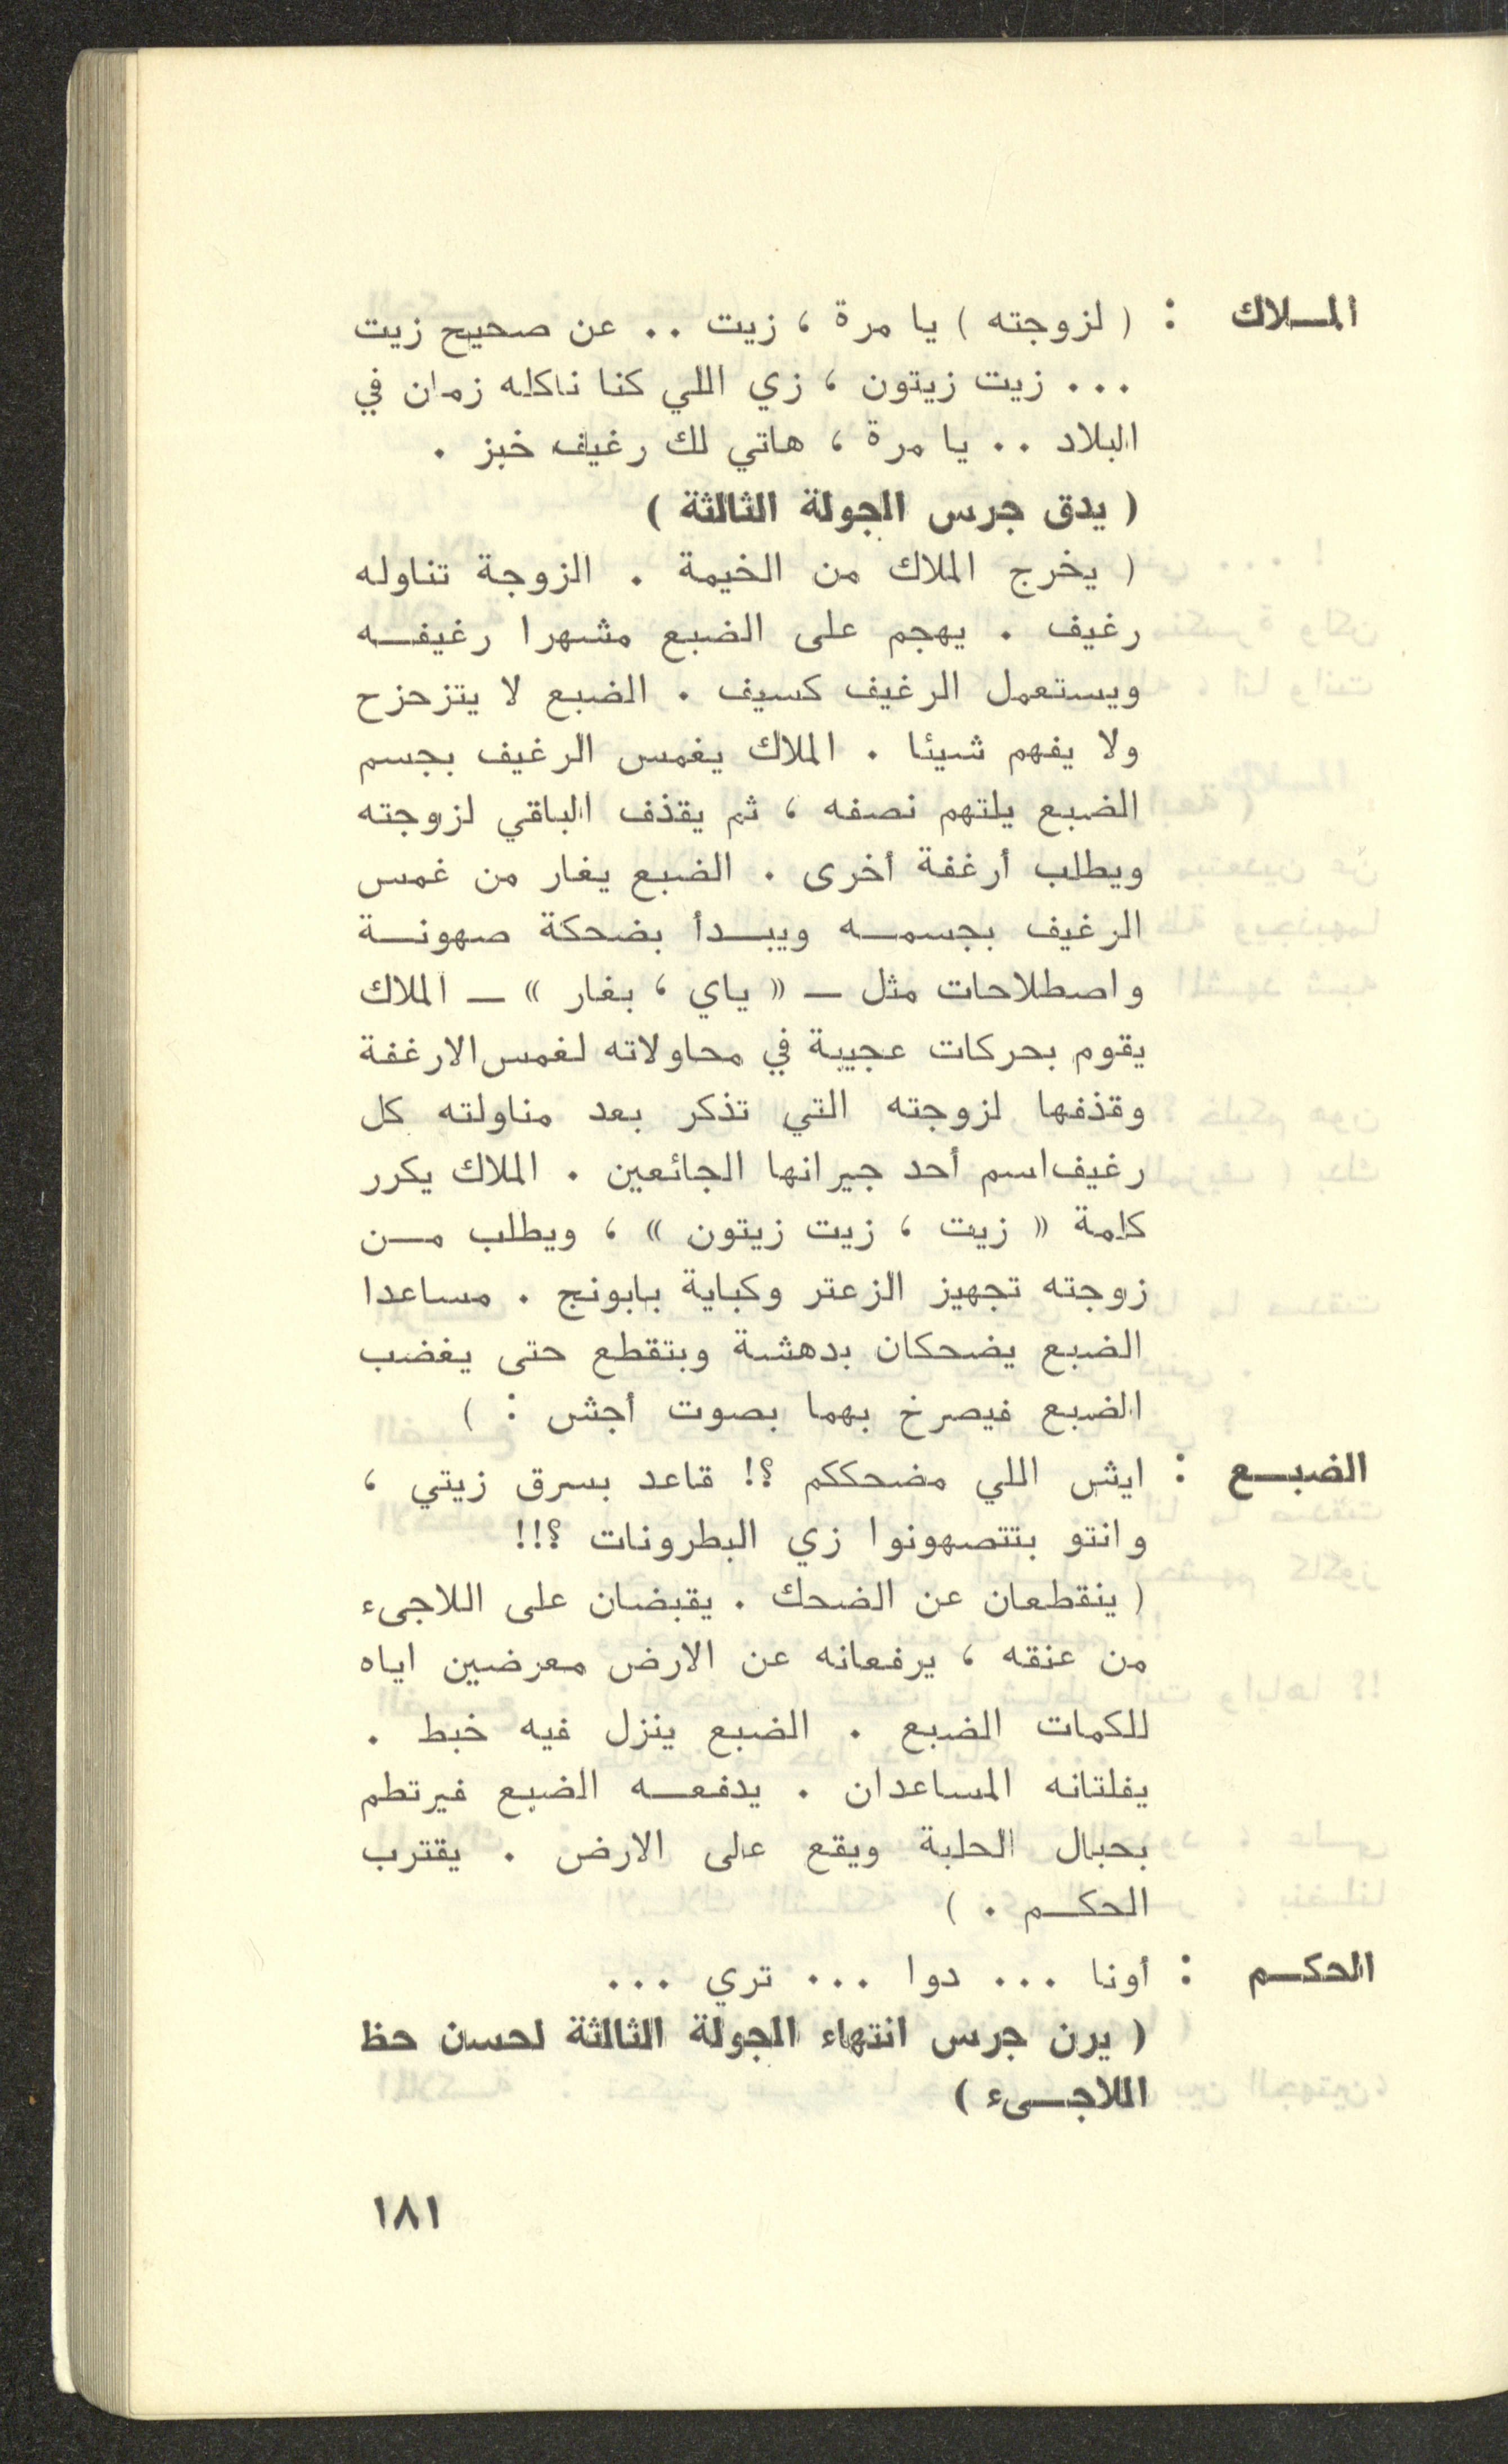 المـلاك : ( لزوجته ) يا مرة ، زيت .. عن صحيح زيت
... زيت زيتون ، زي اللي كنا ناكله زمان في
البلاد .. يا مرة ، هاتي لك رغيف خبز .
( يدق جرس الجولة الثالثة )
( يخرج الملاك من الخيمة . الزوجة تناوله
رغيف . يهجم على الضبع مشهرا رغيفـه
ويستعمل الرغيف كسيف . الضبع لا يتزحزح
ولا يفهم شيئا . الملاك يغمس الرغيف بجسم
الضبع يلتهم نصفه ، ثم يقذف الباقي لزوجته
ويطلب أرغفة أخرى . الضبع يغار من غمس
الرغيف بجسمـه ويبـدأ بضحكة صهونـة
واصطلاحات مثل ــ « ياي ، بغار » ــ الملاك
يقوم بحركات عجيبة في محاولاته لغمس الارغفة
وقذفها لزوجته التي تذكر بعد مناولته كل
رغيف اسم أحد جيرانها الجائعين . الملاك يكرر
كلمة « زيت ، زيت زيتون » ، ويطلب مـن
زوجته تجهيز الزعتر وكباية بابونج . مساعدا
الضبع يضحكان بدهشة وبتقطع حتى يغضب
الضبع فيصرخ بهما بصوت أجش : )
الضبـع : ايش اللي مضحككم ؟! قاعد بسرق زيتي ،
وانتو بتتصهونوا زي البطرونات ؟!!
( ينقطعان عن الضحك . يقبضان على اللاجىء
من عنقه ، يرفعانه عن الارض معرضين اياه
للكمات الضبع . الضبع ينزل فيه خبط .
يفلتانه المساعدان . يدفعـه الضبع فيرتطم
بحبال الحلبة ويقع على الارض . يقترب
الحكـم . )
الحكـم : أونا ... دوا ... تري ...
( يرن جرس انتهاء الجولة الثالثة لحسن حظ
اللاجـىء )
١٨١